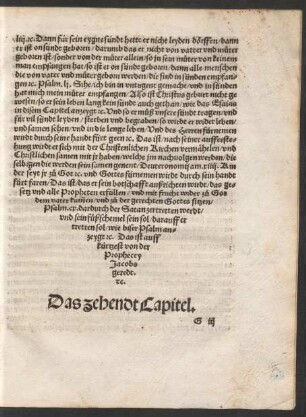 liij.ꝛc. Dann für sein eygne sündt hette er nicht leyden dörffen/ dann
er ist on sündt geboren/ darumb das er nicht von vatter vnd můter
geboren ist/ sonder von der můter allein/ so jn sein můter von keinem
man empfangen hat/ so ist er on sündt geboren/ dann alle menschen
die von vater vnd můter geboren werden/ die sind in sünden empfan-
gen ꝛc. Psalm.lj. Sihe ich bin in vntugent gemacht/ vnd in sünden
hat mich mein můter empfangen/ Also ist Christus geburt nicht ge
wesen/ so er sein leben lang kein sündt auch gethan/ wie das Esaias
in disem Capitel anzeygt ꝛc. Vnd so er müß vnsere sündt tragen/ vnd
für vil sündt leyden/ sterben vnd begraben/ so wirdt er wider leben/
vnd samen sehen/ vnd in die lenge leben. Vnd des Herren fürnemen
wirdt durch seine handt fürt geen ꝛc. Das ist/ nach seiner aufferste-
hung wirdt er sich mit der Christenlichen Kirchen vermähelen/ vnd
Christlichen samen mit jr haben/ welche jm nachvolgen werden/ die
selbigen die werden sein samen genent/ Deuteronomij am.xiiij. Als in
der seyt jr zů Got ꝛc. vnd Gottes fürnemen wirdt durch sein handt
fürt faren/ Das ist/ das er sein botschafft außrichten wirdt/ das ge-
setz vnd alle Propheten erfüllen/ vnd mit frucht wider zů Got
dem vater kumen/ vnd zů der gerechten Gottes sitzen/
Psalm.cx. dardurch der Satan zertreten werdt/
vnd sein füßschemel sein sol/ darauff er
tretten sol/ wie diser Psalm an-
zeygt ꝛc. Das ist auff
kürtzest von der
Prophecey
Jacobs
geredt.
ꝛc.
Das zehendt Capitel.
G iij